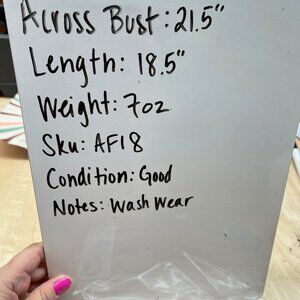 Across Bust: 21.5"
Length: 18.5"
Weight: 7oz
Sku: AF18
Condition: Good
Notes: Wash Wear